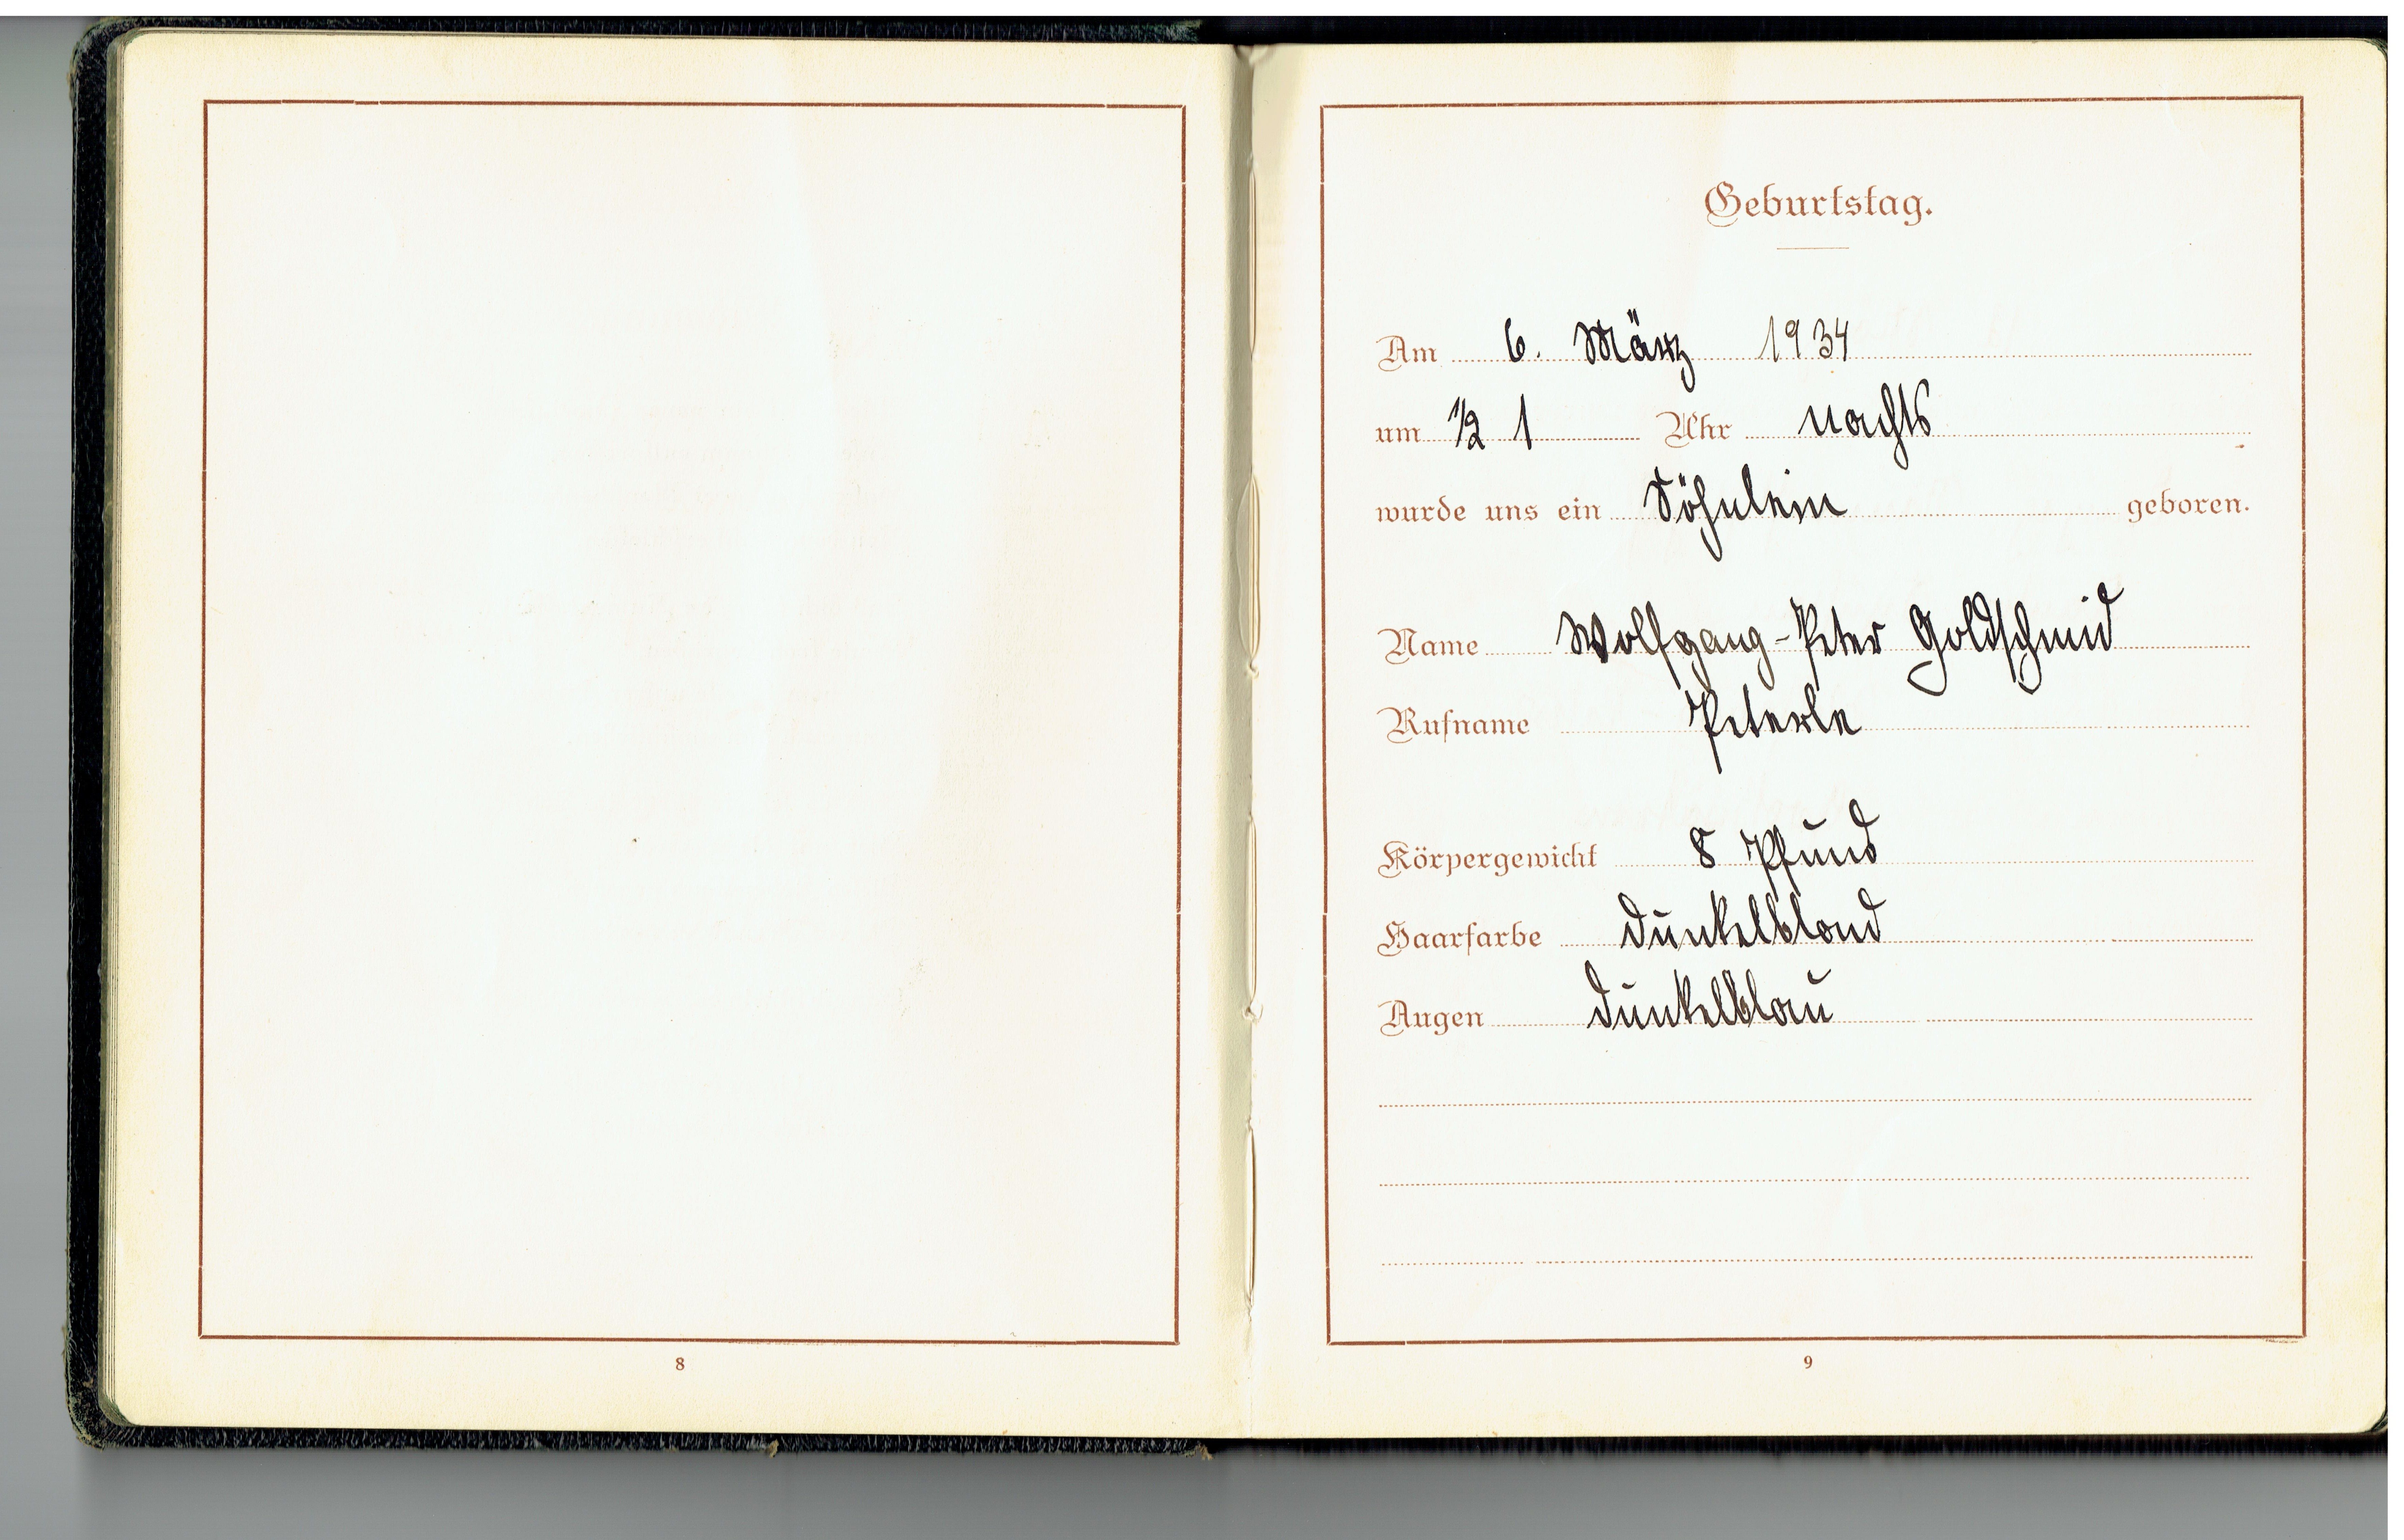 Geburtstag.
Am 6. März 1934
um 1/2 1 Uhr nachts
wurde uns ein Söhnlein geboren.
Name Wolfgang-Peter Goldschmid
Rufname Peterle
Körpergewicht 8 Pfund
Haarfarbe dunkelblond
Augen dunkelblau
8
9